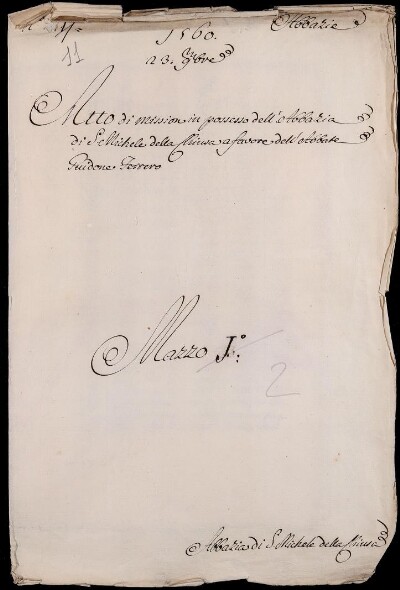 Abbazie
11
1560.
23. 9bre
Atto di mission in possesso dell'Abbazia
di S. Michele della Chiusa a favore dell'Abbate
Guidone Ferrero
Mazzo J.º
2
Abbazia di S. Michele della Chiusa